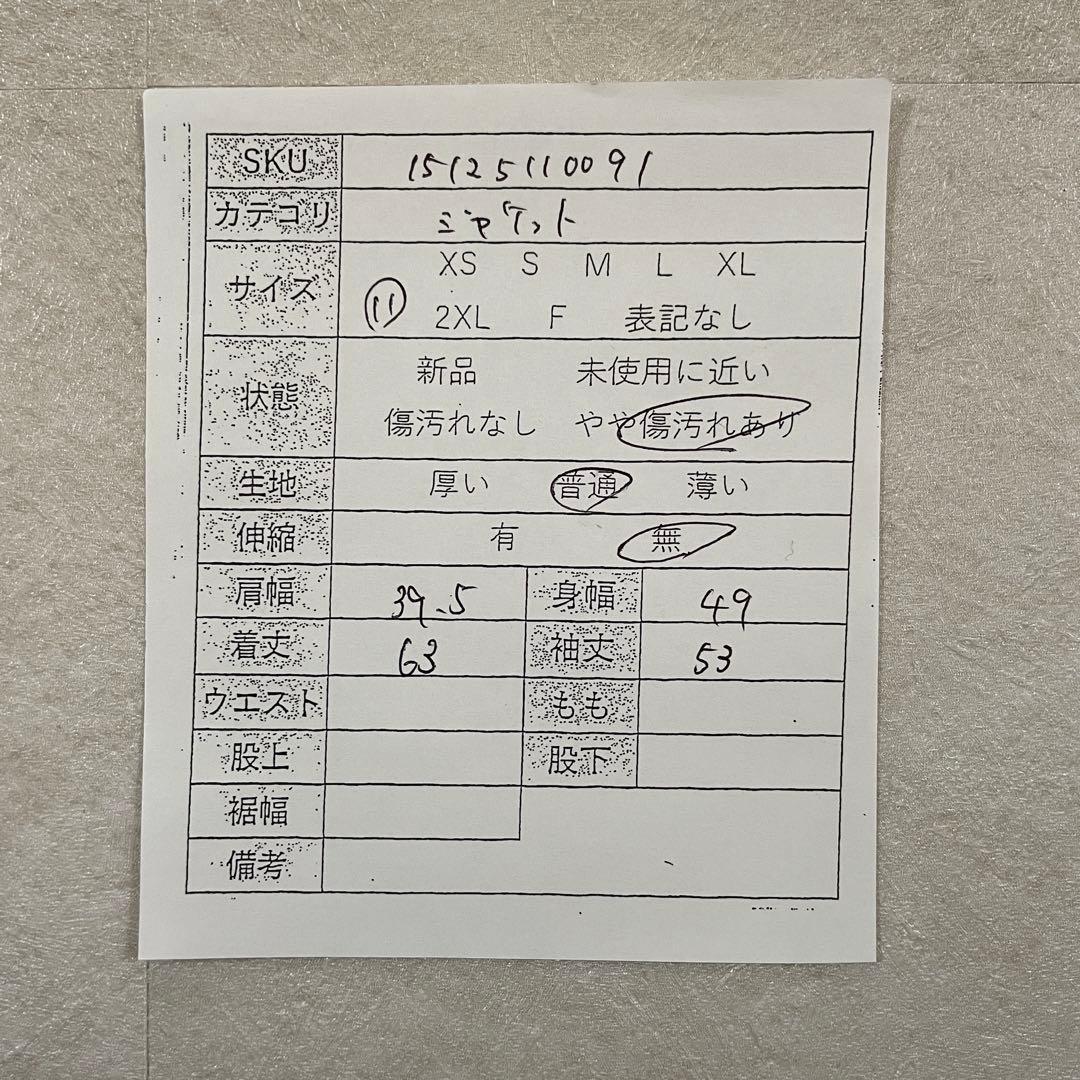 SKU 15125110091
カテゴリ ジャケット
サイズ XS S M L XL
11 2XL F 表記なし
状態 新品 未使用に近い
傷汚れなし やや傷汚れあり
生地 厚い 普通 薄い
伸縮 有 無
肩幅 39.5 身幅 49
着丈 63 袖丈 53
ウエスト もも
股上 股下
裾幅
備考